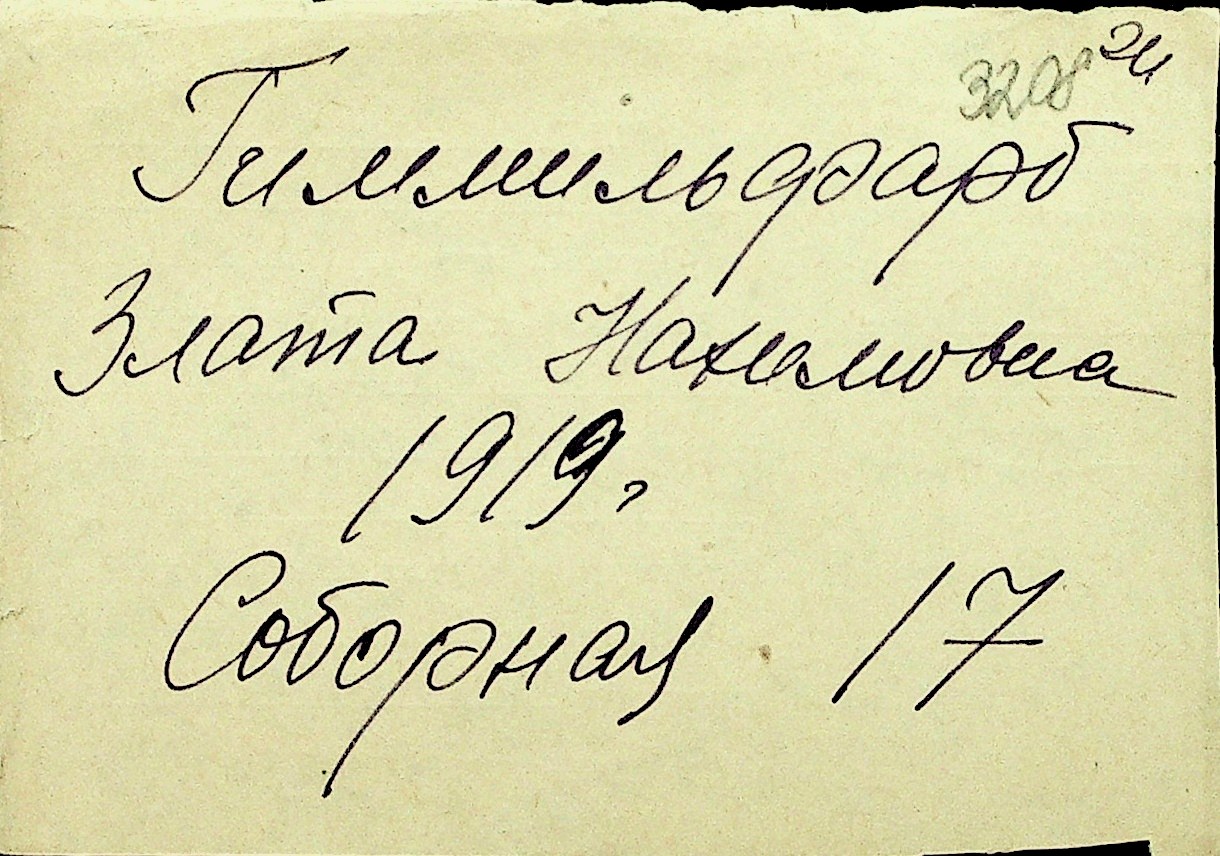 3208
Гиммильфарб
Злата Нахимовна
1919г
Соборная 17